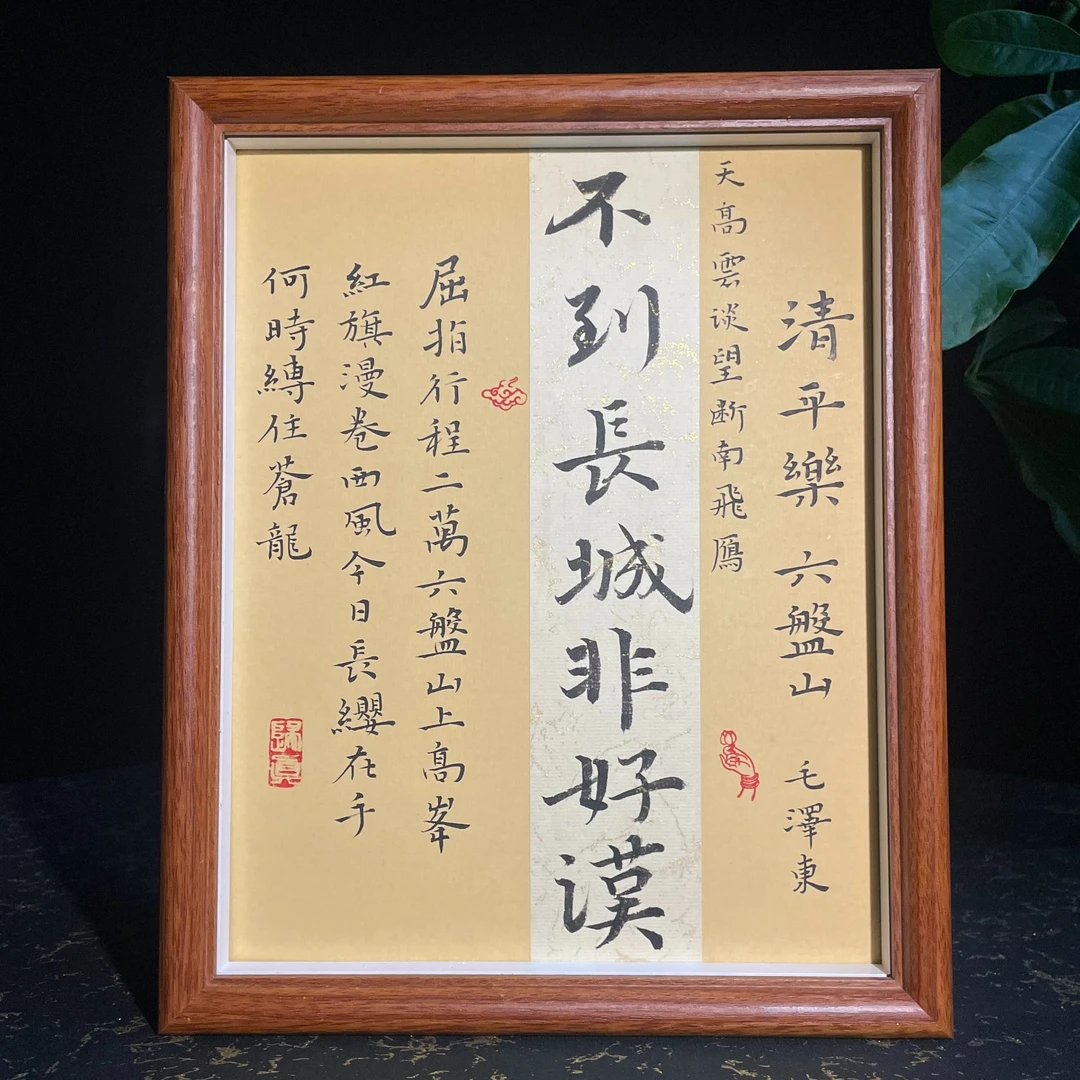 清平樂 六盤山 毛澤東
天高雲淡望断南飛鴈
不到長城非好漢
屈指行程二萬六盤山上高峯
紅旗漫卷西風今日長纓在手
何時縛住蒼龍
歸真